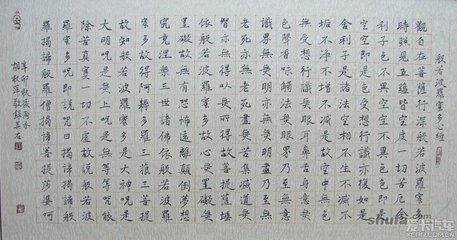 般若波羅蜜多心經
觀自在菩薩行深般若波羅蜜多
時照見五蘊皆空度一切苦厄舍
利子色不異空空不異色色即是
空空即是色受想行識亦復如是
舍利子是諸法空相不生不滅不
垢不淨不增不減是故空中無色
無受想行識無眼耳鼻舌身意無
色聲香味觸法無眼界乃至無意
識界無無明亦無無明盡乃至無
老死亦無老死盡無苦集滅道無
智亦無得以無所得故菩提薩埵
依般若波羅蜜多故心無罣礙無
罣礙故無有恐怖遠離顛倒夢想
究竟涅槃三世諸佛依般若波羅
蜜多故得阿耨多羅三藐三菩提
故知般若波羅蜜多是大神咒是
大明咒是無上咒是無等等咒能
除一切苦真實不虛故說般若波
羅蜜多咒即說咒曰揭諦揭諦般
羅揭諦般羅僧揭諦菩提薩婆訶
辛卯秋